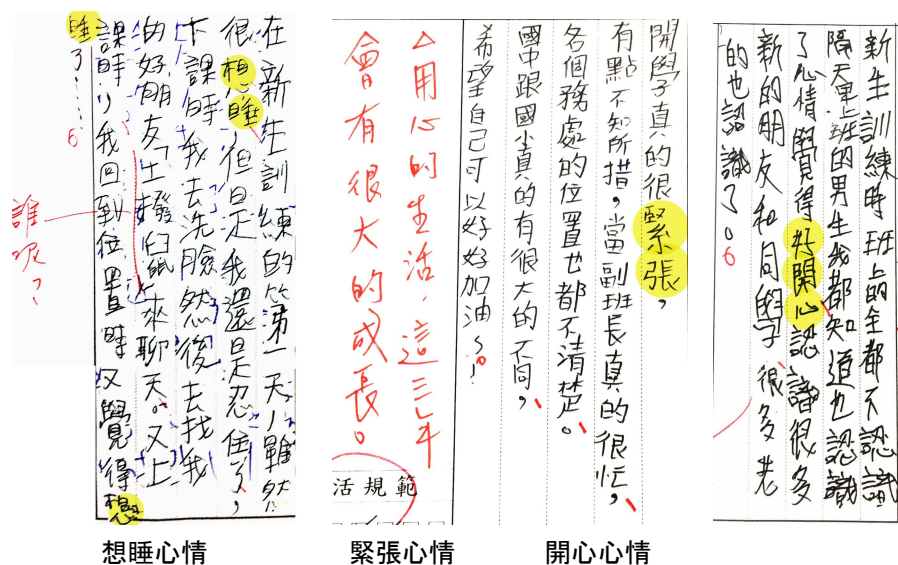 在新生訓練的第一天,雖然
很想睡,但是我還是忍住了,
下課時我去洗臉然後去找我
的好朋友「土撥鼠」來聊天。又上
課時,我回到位置時又覺得想
睡了……
6
誰呢?
想睡心情
開學真的很緊張,
有點不知所措,當副班長真的很忙,
各個務處的位置也都不清楚。
國中跟國小真的有很大的不同,
希望自己可以好好加油~!
△用心的生活,這三年
會有很大的成長。
活規範
緊張心情
新生訓練時班上的全都不認識
隔天早上班的男生我都知道也認識
了心情覺得好開心認識很多
新的朋友和同學很多老
的也認識了。
6
開心心情